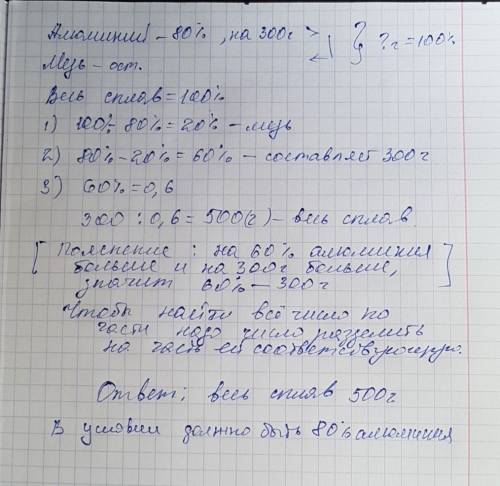 Алюминий – 80%, на 300г > } ?г = 100%
Медь – ост.
Весь сплав = 100%
1) 100% - 80% = 20% – медь
2) 80% - 20% = 60% – составляет 300г
3) 60% = 0,6
300 : 0,6 = 500(г) – весь сплав.
[Пояснение: на 60% алюминия
больше и на 300г больше,
значит 60% – 300г]
Чтобы найти всё число по
части надо число разделить
на часть ей соответствующую.
Ответ: весь сплав 500г
В условии должно быть 80% алюминия